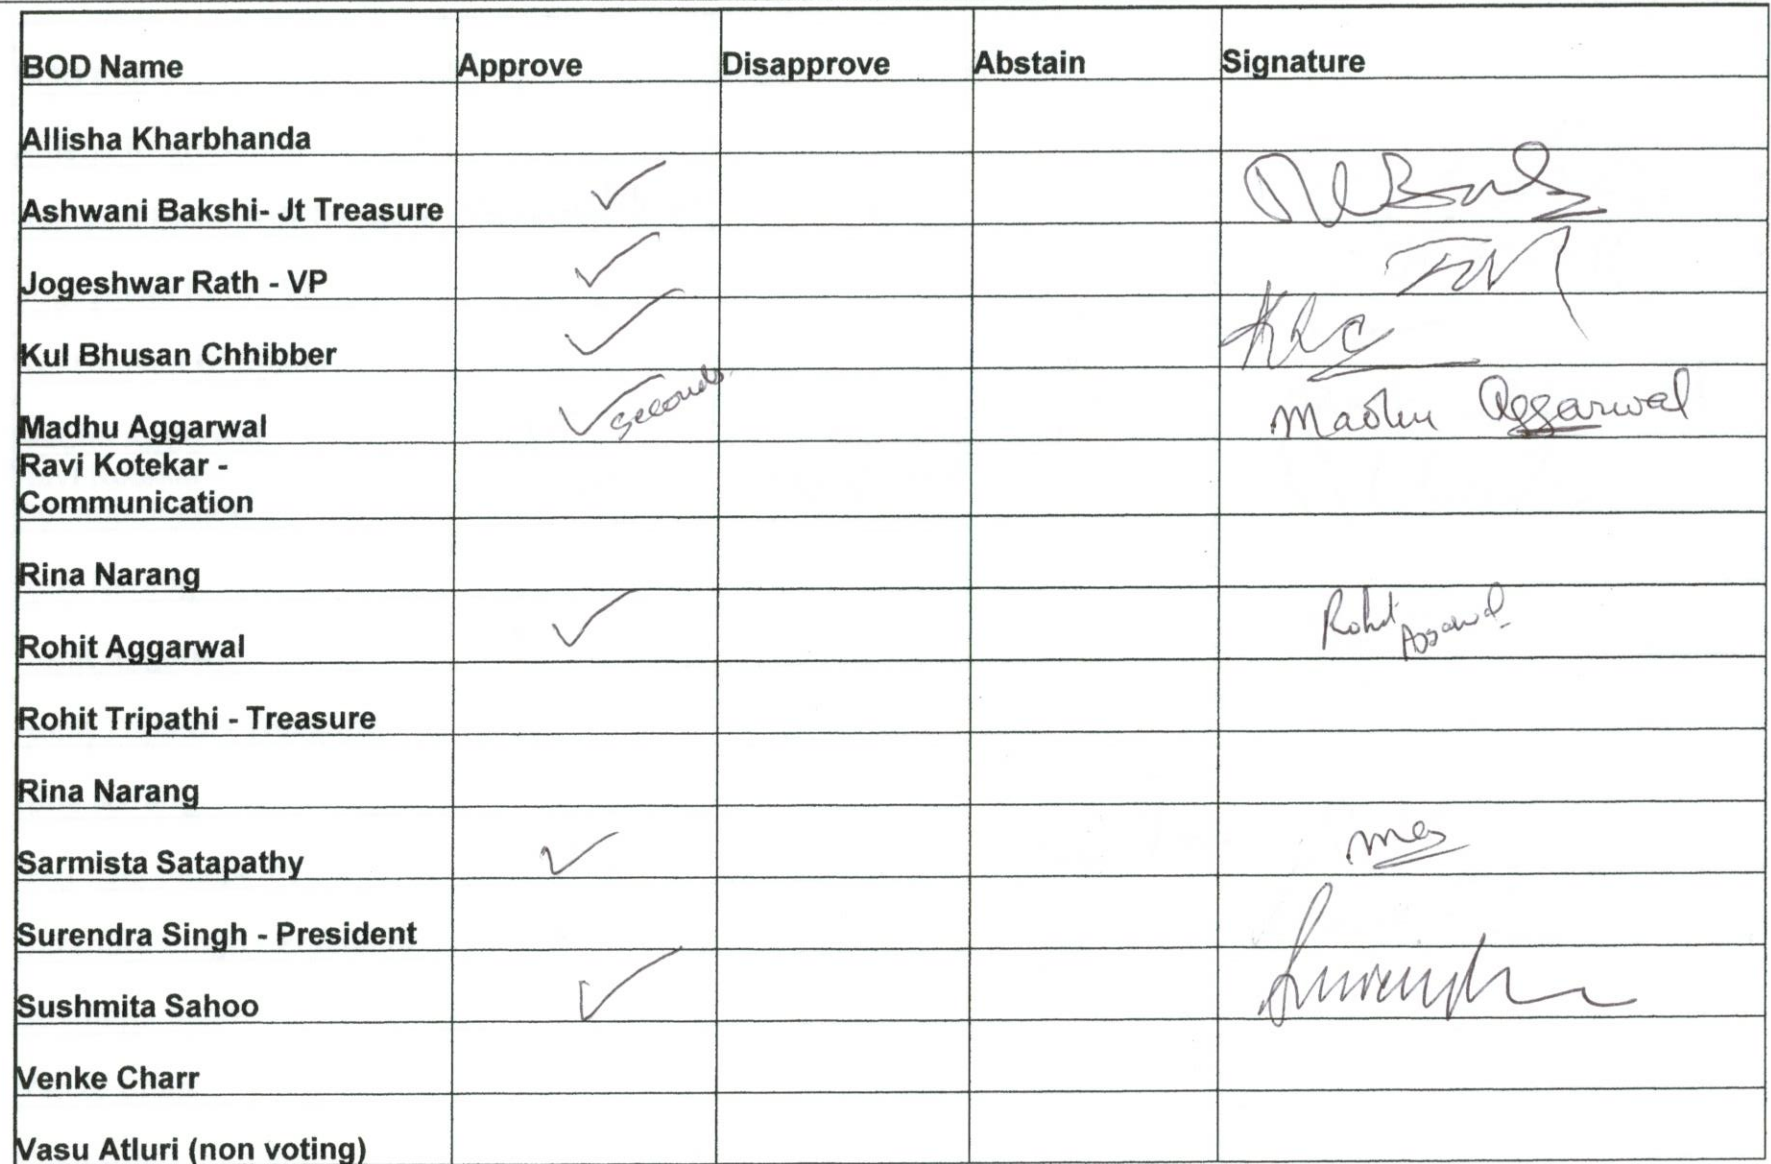 BOD Name Approve Disapprove Abstain Signature
Allisha Kharbhanda
Ashwani Bakshi- Jt Treasure ✓
Jogeshwar Rath - VP ✓
Kul Bhusan Chhibber ✓
Madhu Aggarwal ✓ seconds Madhu Aggarwal
Ravi Kotekar -
Communication
Rina Narang
Rohit Aggarwal ✓ Rohit Aggarwal
Rohit Tripathi - Treasure
Rina Narang
Sarmista Satapathy ✓
Surendra Singh - President
Sushmita Sahoo ✓
Venke Charr
Vasu Atluri (non voting)